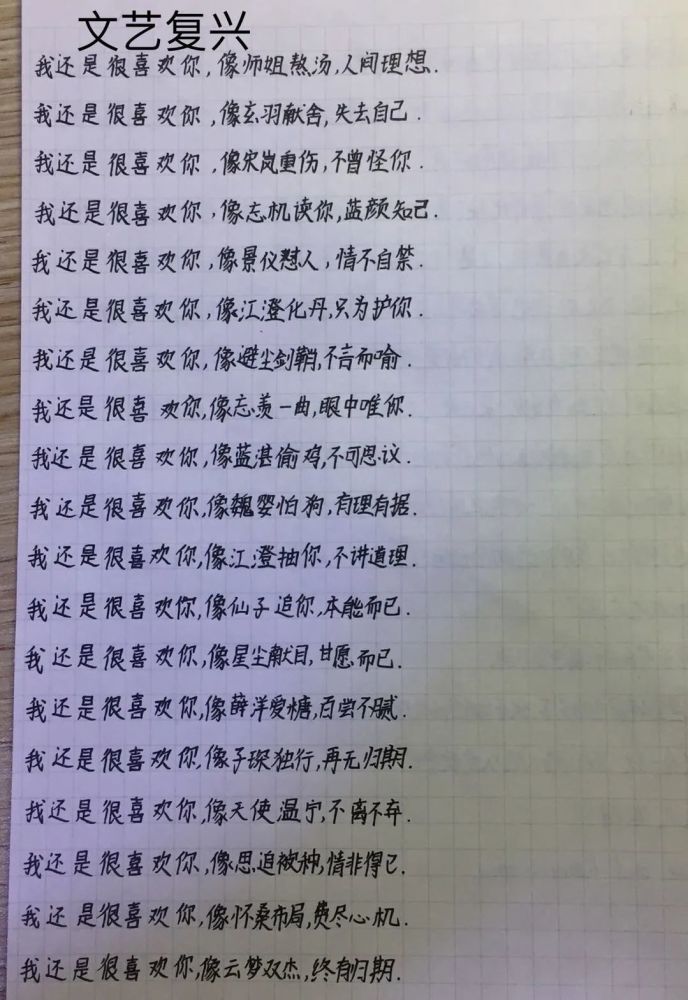 文艺复兴
我还是很喜欢你,像师姐熬汤,人间理想.
我还是很喜欢你,像玄羽献舍,失去自己.
我还是很喜欢你,像宋岚重伤,不曾怪你.
我还是很喜欢你,像忘机读你,蓝颜知己.
我还是很喜欢你,像景仪怼人,情不自禁.
我还是很喜欢你,像江澄化丹,只为护你.
我还是很喜欢你,像避尘剑鞘,不言而喻.
我还是很喜欢你,像忘羡一曲,眼中唯你.
我还是很喜欢你,像蓝湛偷鸡,不可思议.
我还是很喜欢你,像魏婴怕狗,有理有据.
我还是很喜欢你,像江澄抽你,不讲道理.
我还是很喜欢你,像仙子追你,本能而已.
我还是很喜欢你,像星尘献目,甘愿而已.
我还是很喜欢你,像薛洋爱糖,百尝不腻.
我还是很喜欢你,像子琛独行,再无归期.
我还是很喜欢你,像天使温宁,不离不弃.
我还是很喜欢你,像思追被种,情非得已.
我还是很喜欢你,像怀桑布局,费尽心机.
我还是很喜欢你,像云梦双杰,终有归期.